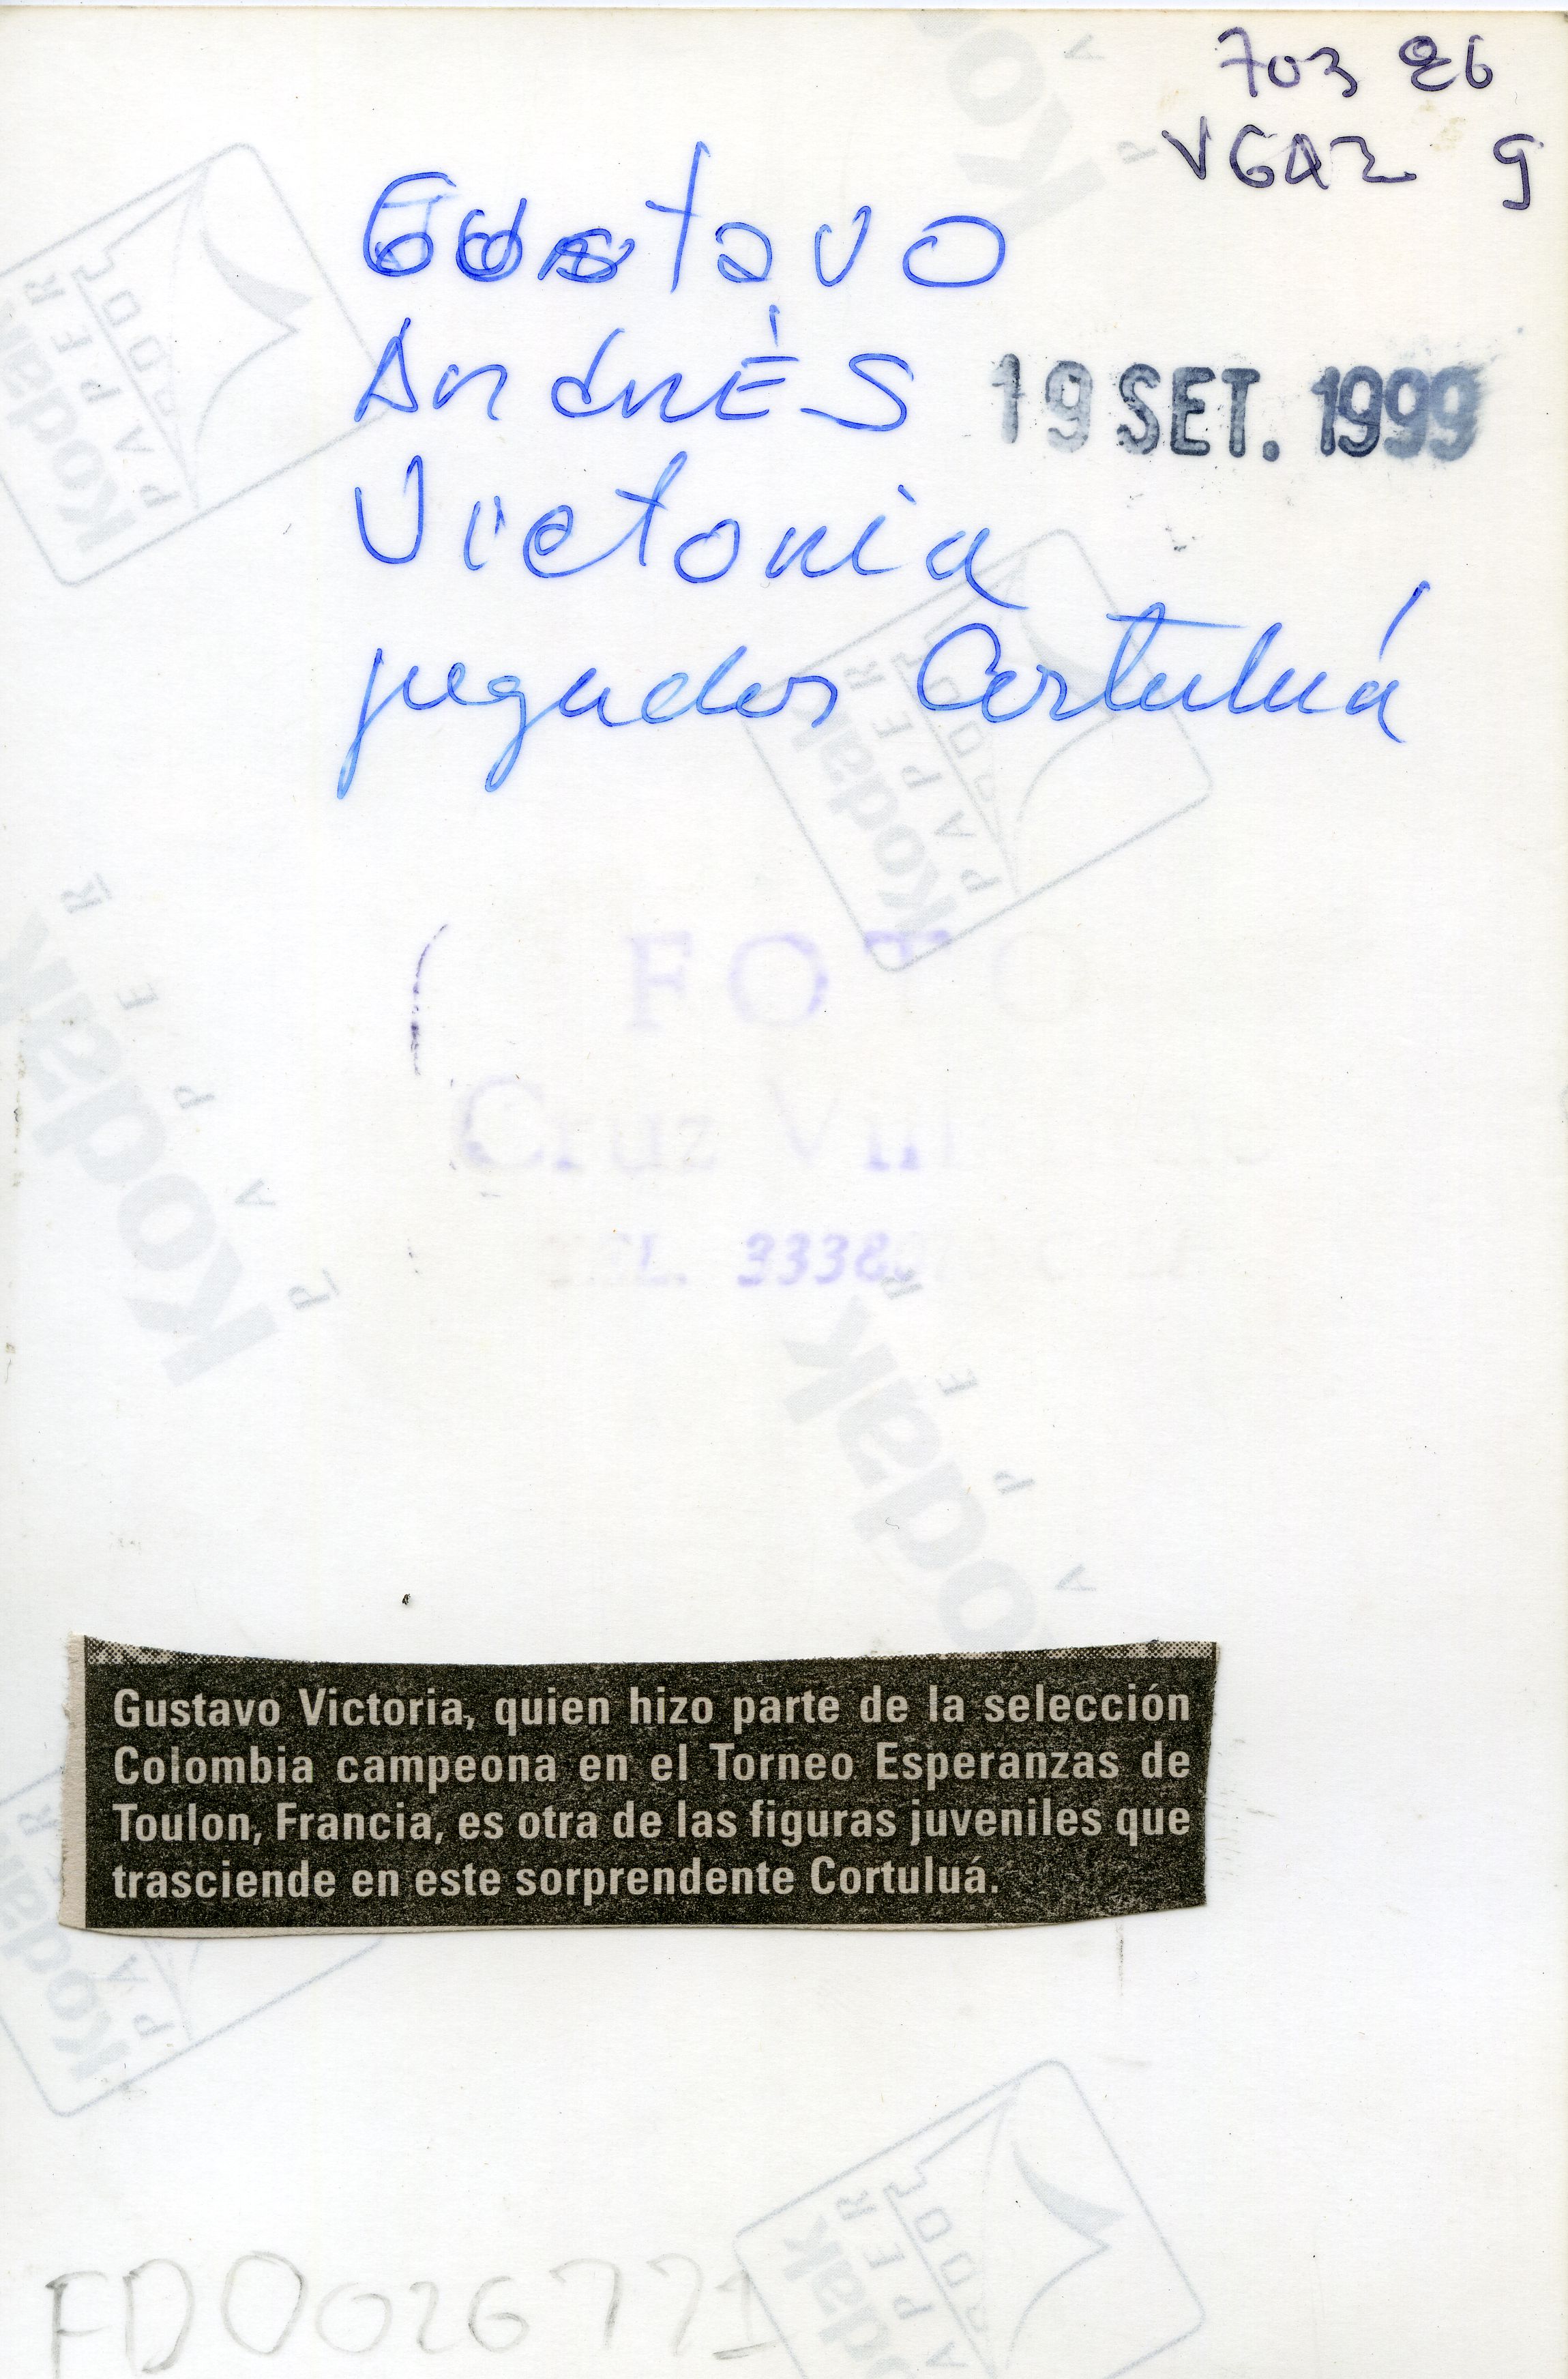 703 26
VGA2 g
Gustavo
Andrés
19 SET. 1999
Victoria
jugador Cortuluá
FOTO
Cruz
TEL.
Gustavo Victoria, quien hizo parte de la selección
Colombia campeona en el Torneo Esperanzas de
Toulon, Francia, es otra de las figuras juveniles que
trasciende en este sorprendente Cortuluá.
FD0026771
Kodak
PAPER
Kodak
PAPER
Kodak
PAPER